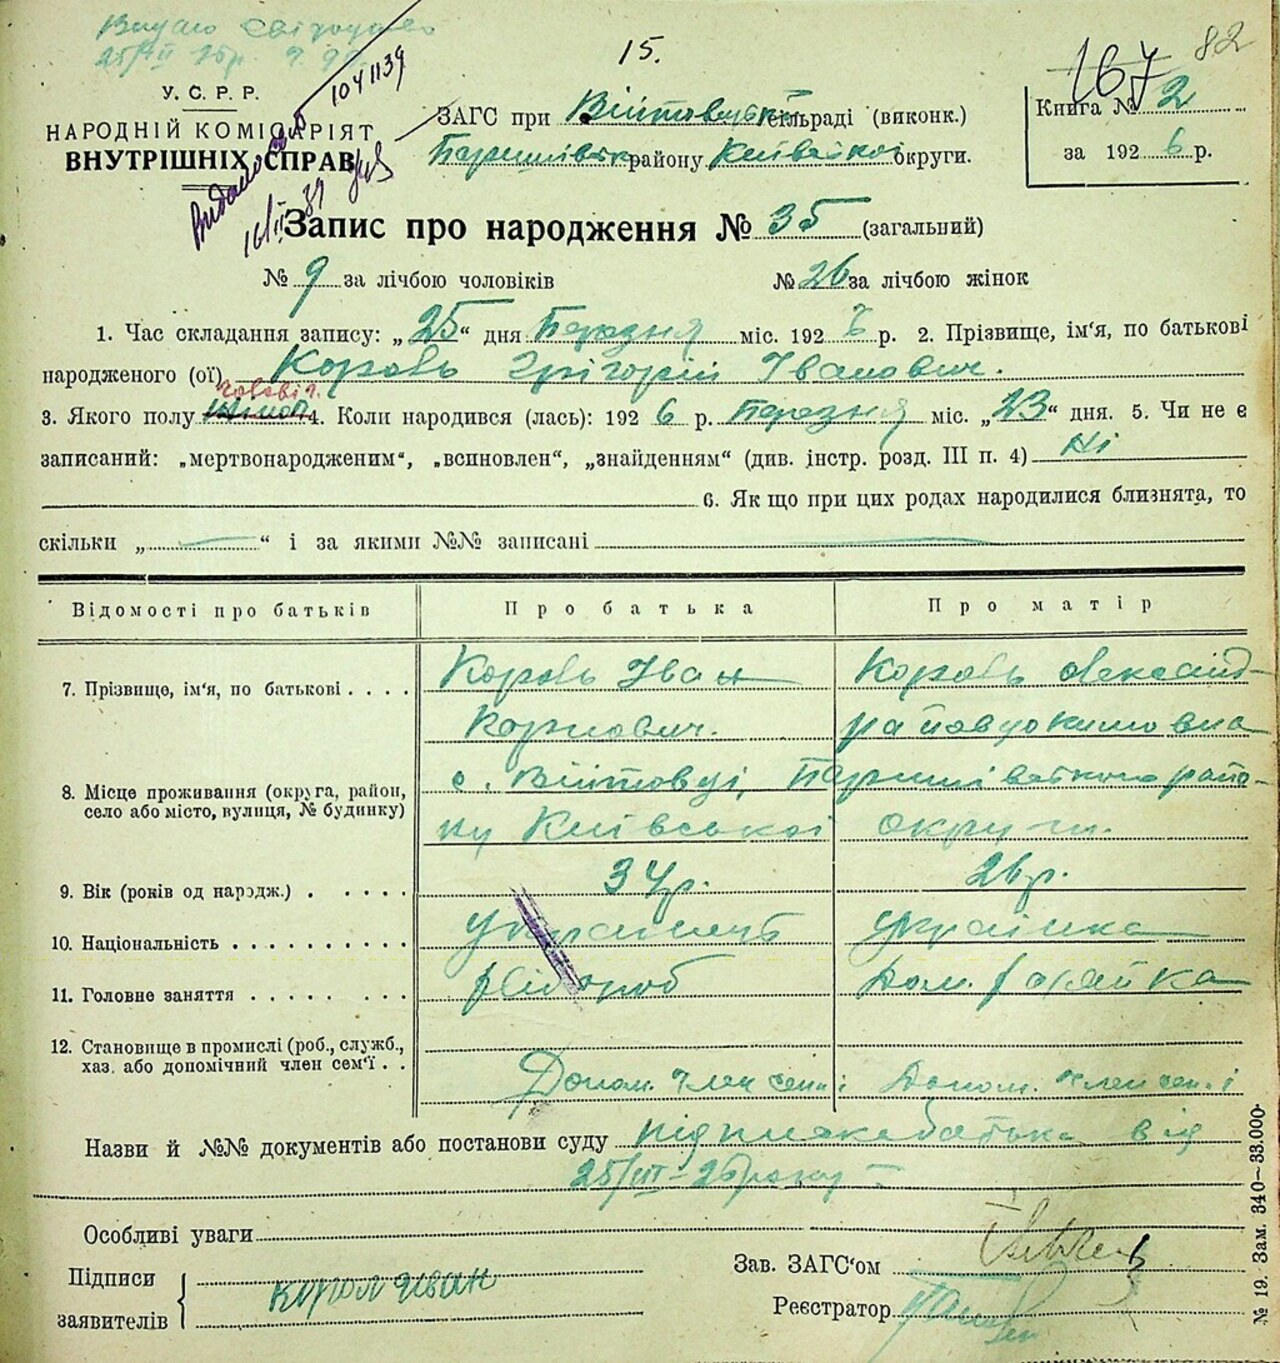 Видано
15.
82
167
У. С. Р. Р.
НАРОДНІЙ КОМІСАРІЯТ
ВНУТРІШНІХ СПРАВ
Видано
1041139
ЗАГС при Війтовецькій сільраді (виконк.)
Баришівськ району Київської округи.
Книга № 2
за 1926 р.
Запис про народження № 35 (загальний)
№ 9 за лічбою чоловіків № 26 за лічбою жінок
1. Час складання запису: „25“ дня Березня міс. 1926 р. 2. Прізвище, ім'я, по батькові
народженого (ої) Король Григорій Іванович.
чоловіч.
3. Якого полу 4. Коли народився (лась): 1926 р. Березня міс. „23“ дня. 5. Чи не є
записаний: „мертвонародженим“, „всиновлен“, „знайденням“ (див. інстр. розд. III п. 4) Ні
6. Як що при цих родах народилися близнята, то
скільки „ “ і за якими №№ записані
Відомості про батьків Про батька Про матір
7. Прізвище, ім'я, по батькові . . . . Король Іван Король Олександ-
Корнович. ра Явдокимовна
8. Місце проживання (округа, район, село або місто, вулиця, № будинку) с. Війтовці, Баришівського райо-
ну Київської округи.
9. Вік (років од народж.) . . . . . 34р. 26р.
10. Національність . . . . . . . . . . українець українка
11. Головне заняття . . . . . . . . хлібороб Дом. хазяйка
12. Становище в промислі (роб., служб.,
хаз. або допомічний член сем'ї . . Допом. член семї Допом. член семї
Назви й №№ документів або постанови суду підписка батька від
25/III-26 року
Особливі уваги
Підписи
заявителів
Корол Иван
Зав. ЗАГС'ом
Реєстратор
№ 19. Зам. 340—33.000.